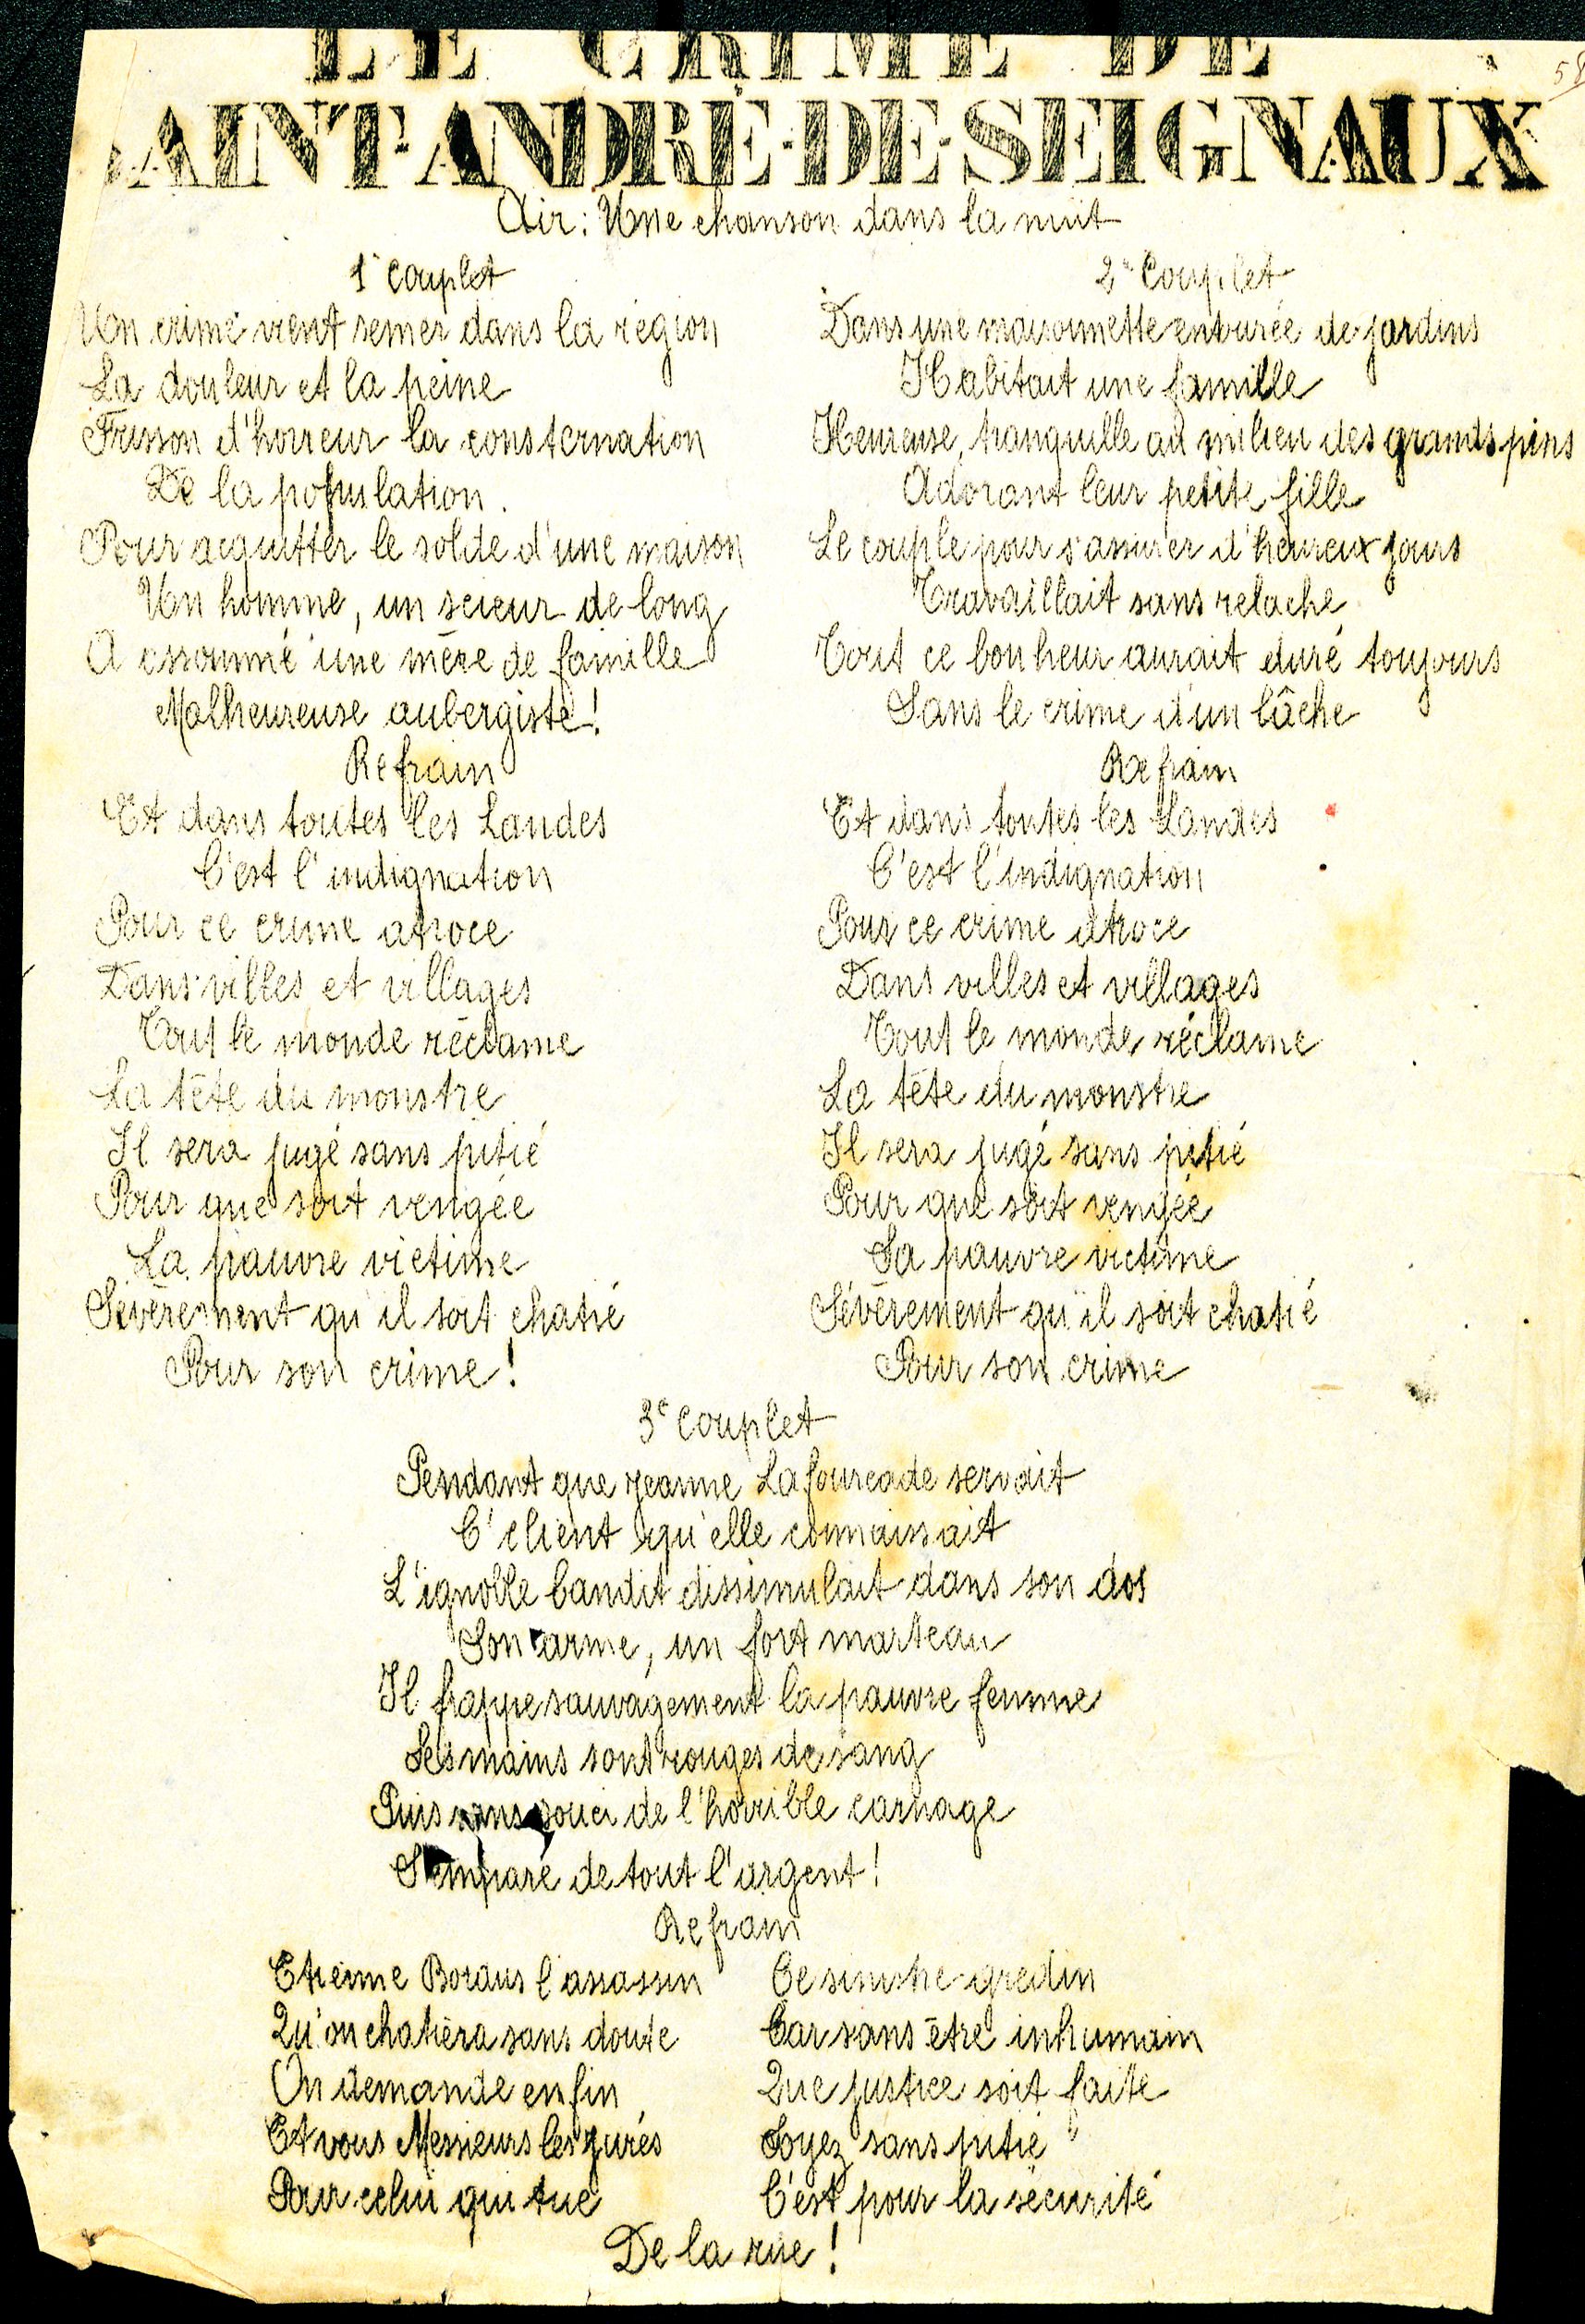 LE CRIME DE
SAINT-ANDRÉ-DE-SEIGNAUX
Air: Une chanson dans la nuit
1er Couplet
Un crime vient semer dans la région
La douleur et la peine
Frisson d'horreur la consternation
De la population.
Pour acquitter le solde d'une maison
Un homme, un scieur de long
A assommé une mère de famille
Malheureuse aubergiste!
Refrain
Et dans toutes les Landes
C'est l'indignation
Pour ce crime atroce
Dans villes et villages
Tout le monde réclame
La tête du monstre
Il sera jugé sans pitié
Pour que soit vengée
La pauvre victime
Sévèrement qu'il soit chatié
Pour son crime!
2e Couplet
Dans une maisonnette enturée de jardins
Habitait une famille
Heureuse, tranquille au milieu des grands pins
Adorant leur petite fille
Le couple pour s'assurer d'heureux jours
Travaillait sans relache
Tout ce bonheur aurait duré toujours
Sans le crime d'un lâche
Refrain
Et dans toutes les Landes
C'est l'indignation
Pour ce crime atroce
Dans villes et villages
Tout le monde réclame
La tête du monstre
Il sera jugé sans pitié
Pour que soit vengée
Sa pauvre victime
Sévèrement qu'il soit chatié
Pour son crime
3e Couplet
Pendant que Jeanne Lafourcade servait
C'client qu'elle connaissait
L'ignoble bandit dissimulait dans son dos
Son arme, un fort marteau
Il frappe sauvagement la pauvre femme
Ses mains sont rouges de sang
Puis sans souci de l'horrible carnage
S'empare de tout l'argent!
Refrain
Etienne Bordus l'assassin
Ce sinistre gredin
Qu'on chatiera sans doute
Car sans être inhumain
On demande enfin
Que justice soit faite
Et vous Messieurs les jurés
Soyez sans pitié
Pour celui qui tue
C'est pour la sécurité
De la rue!